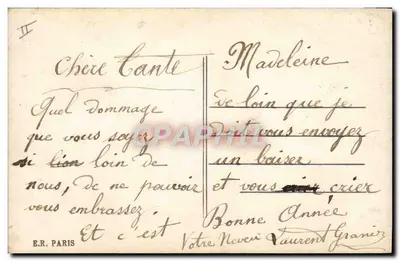 II
Chère Tante
Quel dommage
que vous soyez
si lion loin de
nous, de ne pouvoir
vous embrassez.
Et c'est
E.R. PARIS
Madeleine
de loin que je
doit vous envoyez
un baiser
et vous crier
Bonne Année
Votre Neveu Laurent
PRAPHI